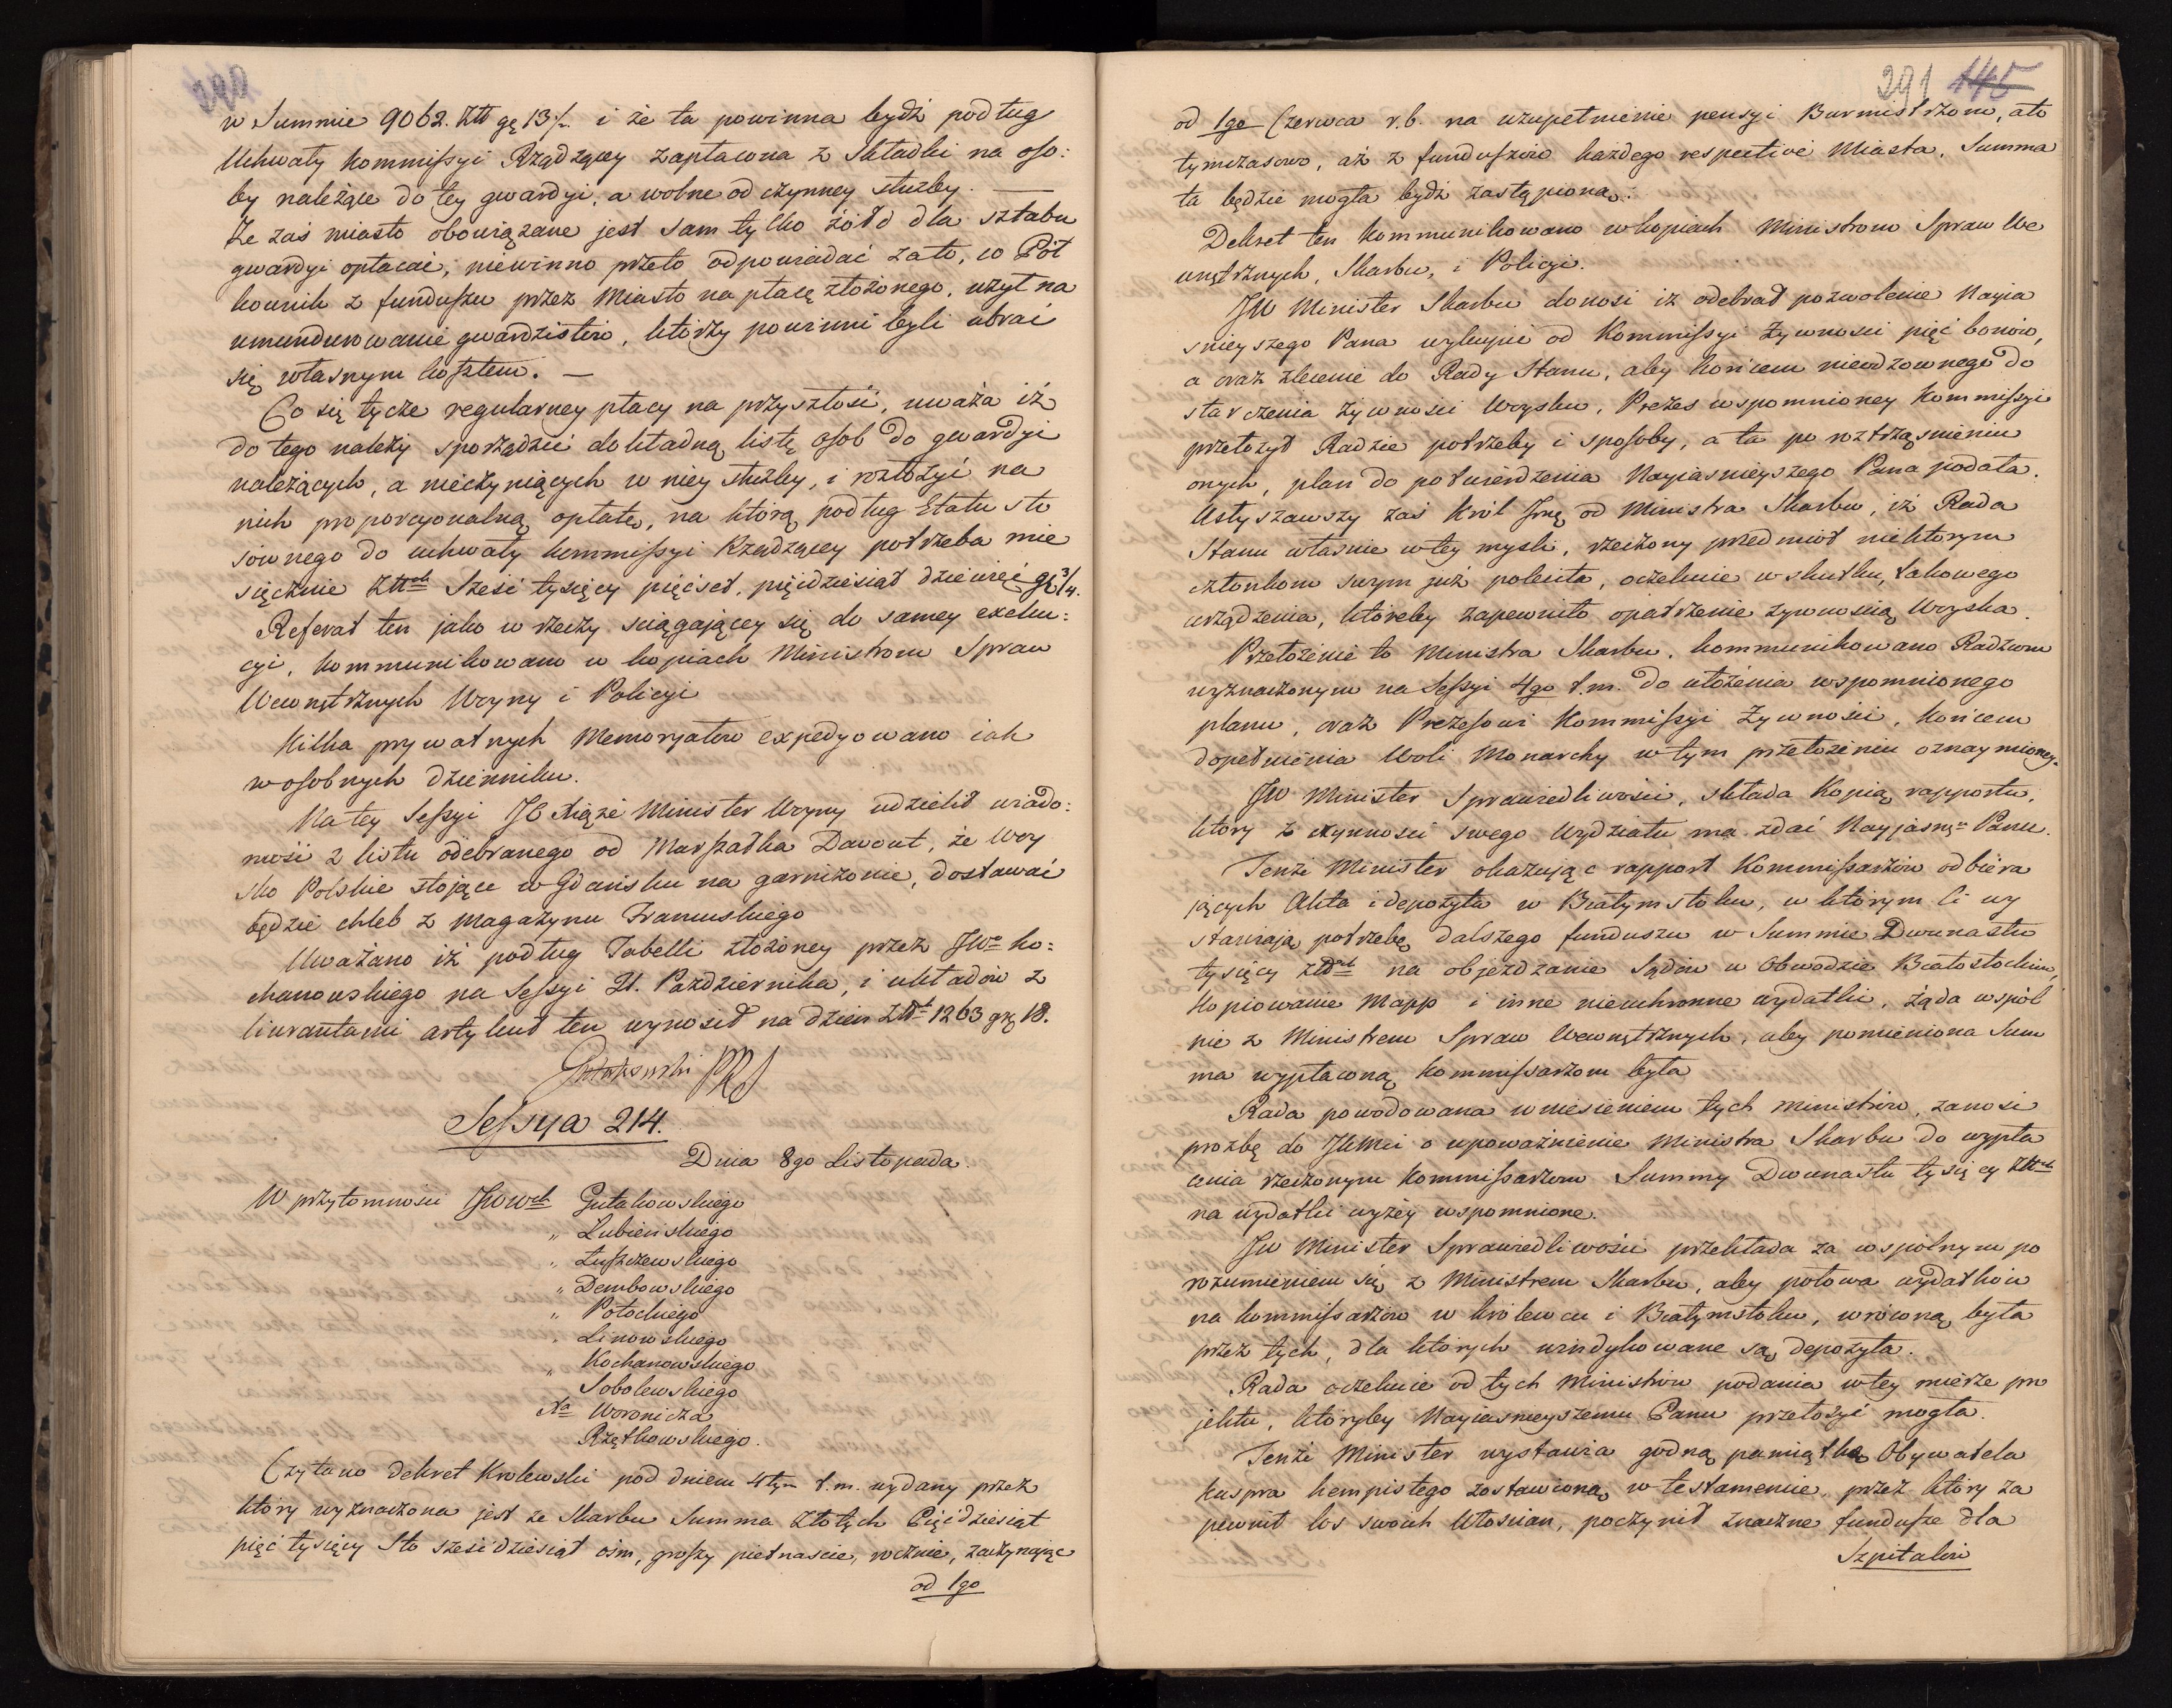 290
w Summie 9062. Ztt gę 13½. i że ta powinna bydź podług
Uchwały Kommissyi Rządzącey zapłacona z Składki na oso:
by należące do tey gwardyi, a wolne od czynney służby. —
Że zaś miasto obowiązane jest sam tylko żółd dla sztabu
gwardyi opłacać, niewinno przeto odpowiadać za to, co Pół
kownik z funduszu przez Miasto na płacę złożonego, użył na
umundurowanie gwardzistów, którzy powinni byli ubrać
się własnym kosztem. —
Co się tycze regularney płacy na przyszłość, uważa iż
do tego należy sporządzić dokładną listę osob do gwardyi
należących, a nieczyniących w niey służby, i rozłożyć na
nich proporcyonalną opłatę, na którą podług Etatu sto
sownego do uchwały kommissyi Rządzącey potrzeba mie
sięcznie Zttch Sześć tysięcy pięćset, pięćdziesiąt dziewięć gę ¾.
Referat ten jako w rzeczy sciągającey się do samey exeku:
cyi, kommunikowano w kopiach Ministrom Spraw
Wewnętrznych Woyny i Policyi
Kilka prywatnych Memoryałów expedyowano iak
w osobnych dzienniku.
Na tey Sessyi JO Xiąże Minister Woyny udzielił wiado:
mość z listu odebranego od Marszałka Davout, że Woy
sko Polskie stojące w Gdańsku na garnizonie, dostawać
będzie chleb z Magazynu Francuskiego
Uważano iż podług Tabelli złożoney przez JWo Ko:
chanowskiego na Sessyi 21. Pazdziernika, i układów z
liwerantami artykuł ten wynosił na dzień Zttch 1263 grę 18.
Gutakowski PRS
Sessya 214.
Dnia 8go Listopada.
W przytomnosci JWWch Gutakowskiego
" Łubieńskiego
" Łuszczewskiego
" Dembowskiego
" Potockiego
" Linowskiego
" Kochanowskiego
" Sobolewskiego
Xa Woronicza
Rzętkowskiego.
Czytano dekret Krolewski pod dniem 4tym t.m. wydany przez
który wyznaczona jest ze Skarbu Summa Złotych Pięćdziesiąt
pięć tysięcy Sto sześćdziesiąt ośm, groszy pietnascie, rocznie, zaczynając
od 1go
291 145
od 1go Czerwca r.b. na uzupełnienie pensyi Burmistrzom, a to
tymczasowo, aż z funduszów każdego respective Miasta, Summa
ta będzie mogła bydź zastąpiona.
Dekret ten kommunikowano w kopiach Ministrom Spraw We
wnętrznych, Skarbu, i Policyi.
JW Minister Skarbu donosi iż odebrał pozwolenie Nayia
snieyszego Pana wykupić od Kommissyi Żywnosci pięć bonów,
a oraz zlecenie do Rady Stanu, aby końcem nieodzownego do
starczenia żywności Woysku, Prezes wspomnioney Kommissyi
przełożył Radzie potrzeby i sposoby, a ta po roztrząśnieniu
onych, plan do potwierdzenia Nayiasnieyszego Pana podała.
Usłyszawszy zaś Król Jmć od Ministra Skarbu, iż Rada
Stanu własnie w tey mysli, rzeczony przedmiot niektorym
członkom swym już poleciła, oczekuie w skutku, takowego
urządzenia, któreby zapewniło opatrzenie żywnością Woyska.
Przełożenie to Ministra Skarbu, kommunikowano Radzcom
wyznaczonym na Sessyi 4go t.m. do ułożenia wspomnionego
planu, oraz Prezesowi Kommissyi Żywności, końcem
dopełnienia Woli Monarchy w tym przełożeniu oznaymioney.
JW Minister Sprawiedliwości, składa Kopią rapportu,
ktory z czynnosci swego Wydziału ma zdać Nayjasnu Panu.
Tenże Minister okazując rapport Kommissarzów odbiera
jących Akta i depozyta w Białymstoku, w którym Ci wy
stawiają potrzebę dalszego funduszu w Summie Dwunastu
tysięcy Złotch na objezdzanie Sądów w Obwodzie Białostockim,
kopiowanie Mapp i inne nieuchronne wydatki, żąda wspól
nie z Ministrem Spraw Wewnętrznych, aby pomieniona Sum
ma wypłaconą Kommissarzom była
Rada powodowana wniesieniem tych Ministrów, zanosi
prozbę do JKMci o upoważnienie Ministra Skarbu do wypła
cenia rzeczonym Kommissarzom Summy Dwunastu tysięcy Zttch
na wydatki wyżey wspomnione.
JW Minister Sprawiedliwości przekłada za wspólnym po
rozumieniem się z Ministrem Skarbu, aby połowa wydatków
na kommissarzów w Królewcu i Białymstoku, wróconą była
przez tych, dla których windykowane są depozyta.
Rada oczekuie od tych Ministrów podania w tey mierze pro
jektu, któryby Nayiasnieyszemu Panu przełożyć mogła.
Tenże Minister wystawia godną pamiątkę Obywatela
Kaspra Kempistego zostawioną w testamencie, przez który za
pewnił los swoich Włościan, poczynił znaczne fundusze dla
Szpitalów